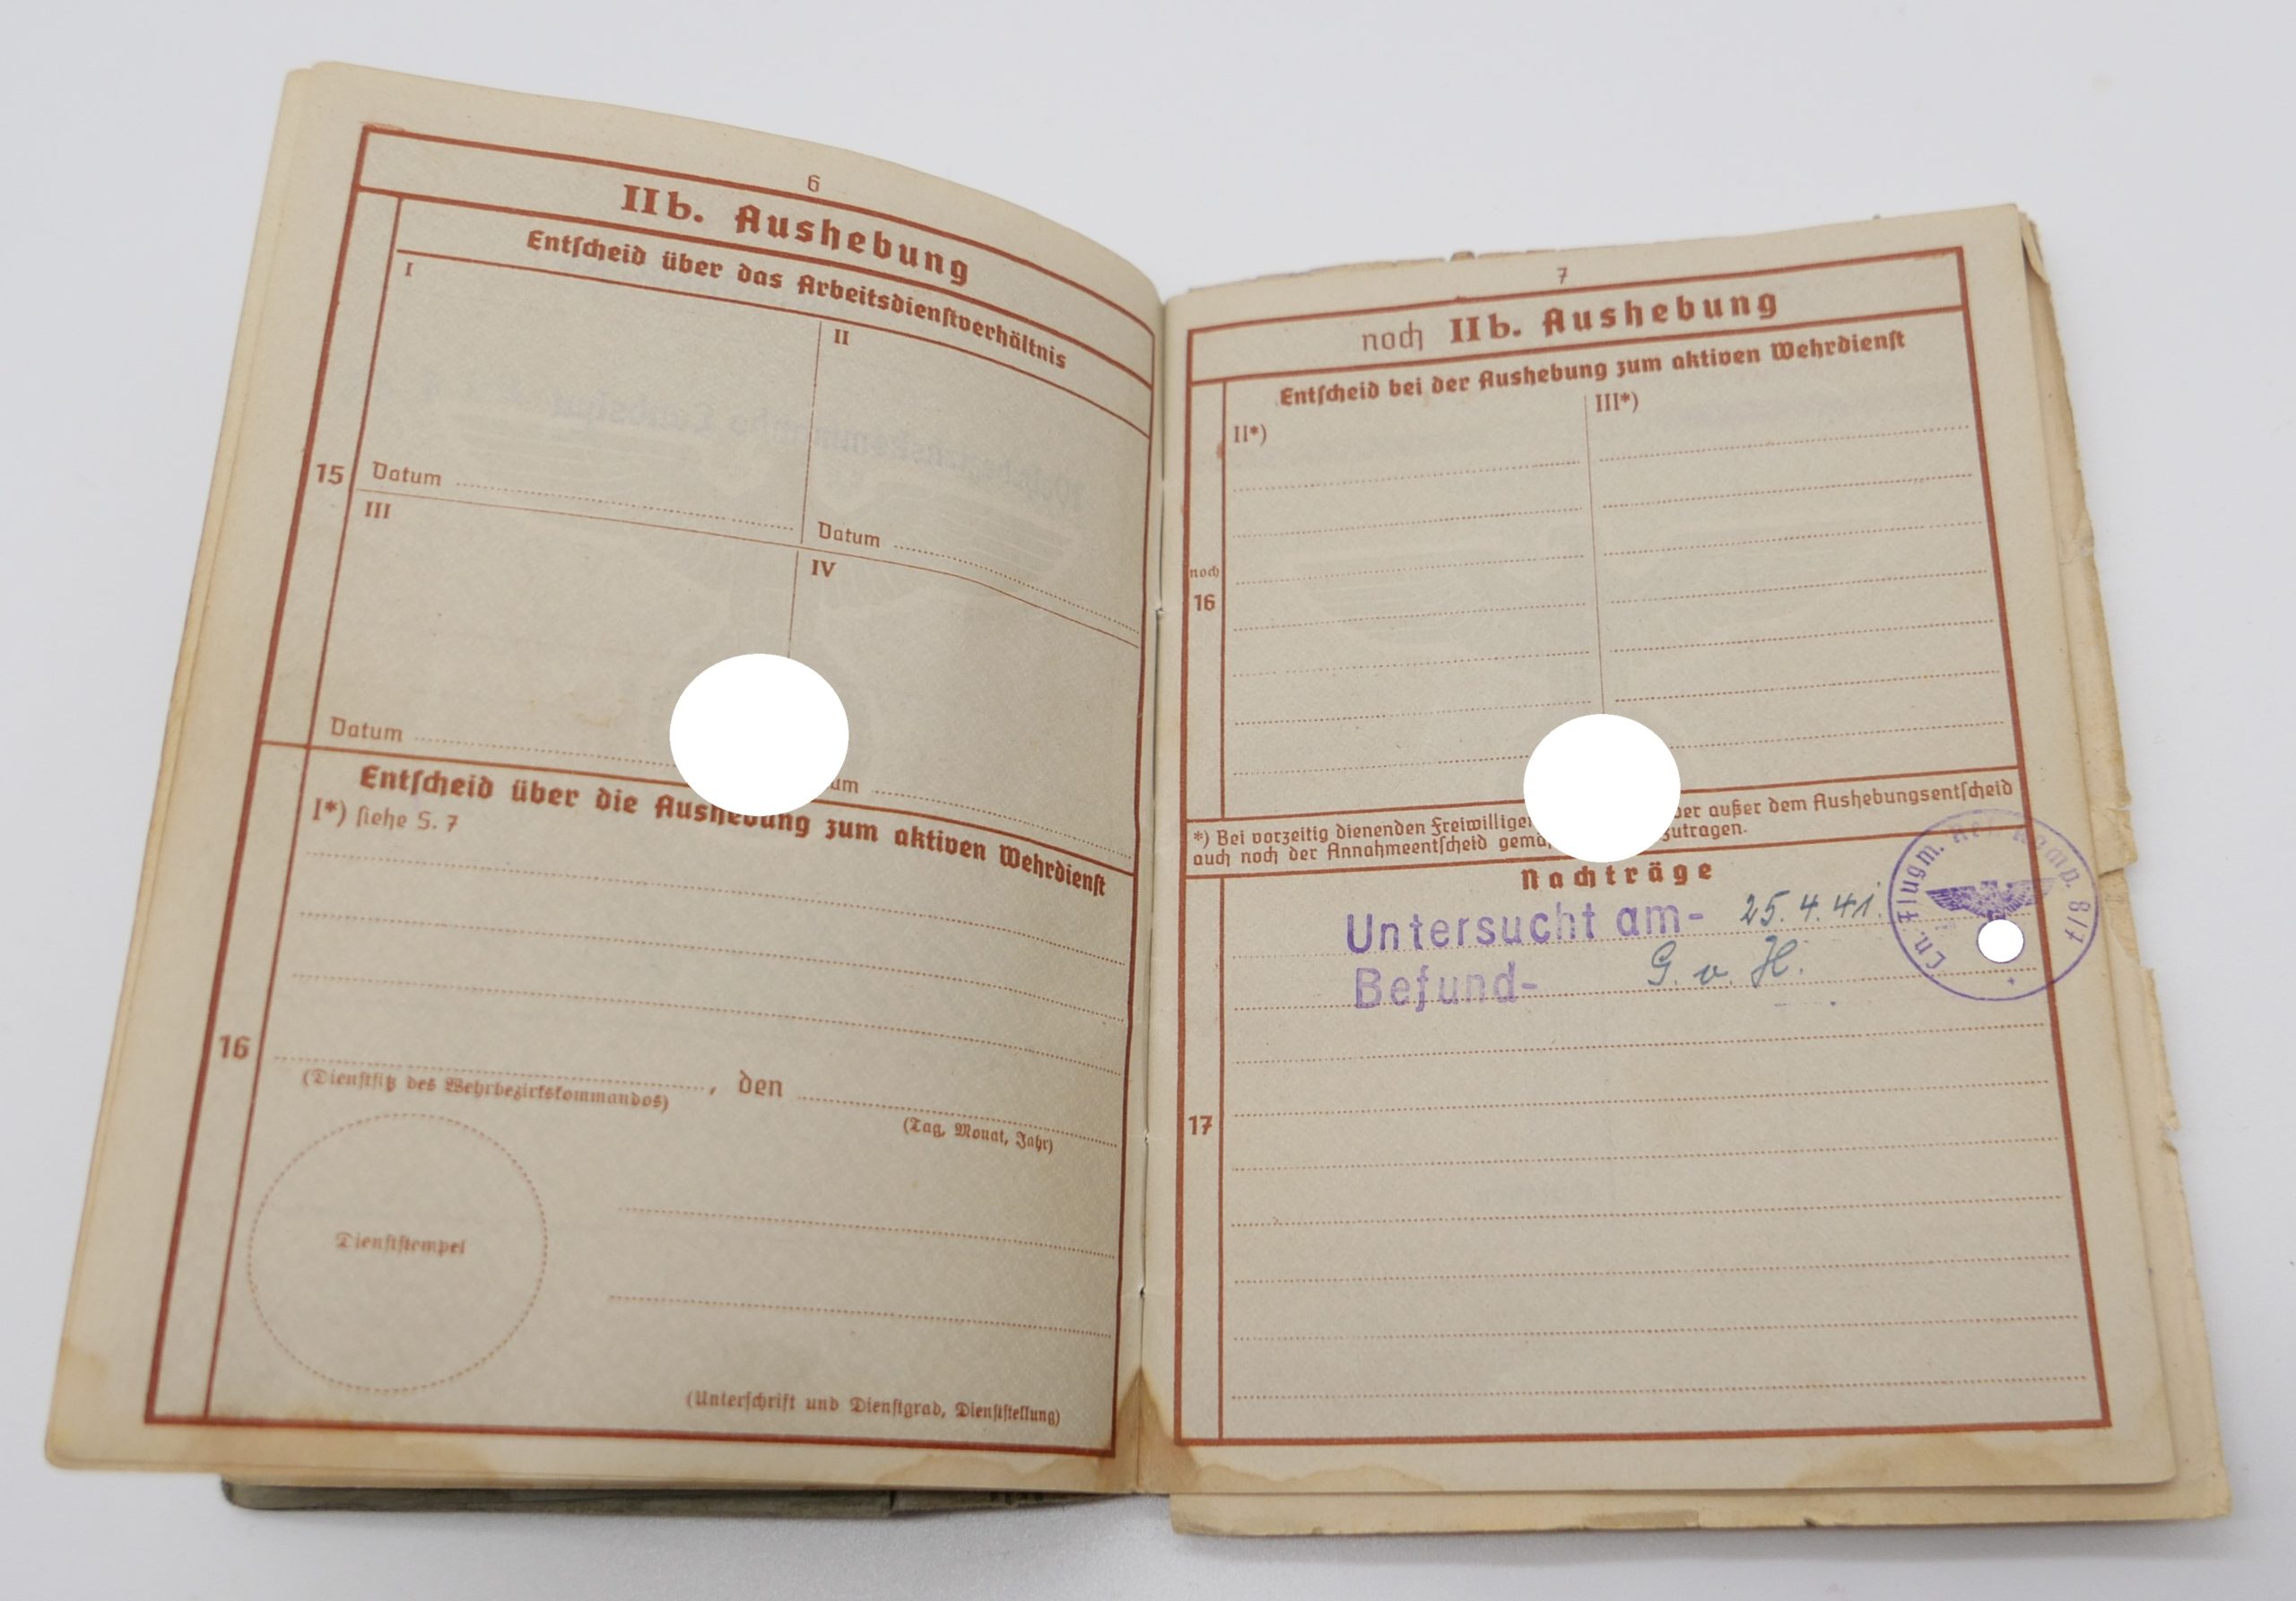 6
IIb. Aushebung
Entscheid über das Arbeitsdienstverhältnis
I
II
15
Datum
Datum
III
IV
Datum
um
Entscheid über die Aushebung zum aktiven Wehrdienst
I*) siehe S. 7
16
, den
(Dienstsitz des Wehrbezirkskommandos)
(Tag, Monat, Jahr)
Dienststempel
(Unterschrift und Dienstgrad, Dienststellung)
7
noch IIb. Aushebung
Entscheid bei der Aushebung zum aktiven Wehrdienst
II*)
III*)
noch
16
*) Bei vorzeitig dienenden Freiwilligen außer dem Aushebungsentscheid
auch noch der Annahmeentscheid
Nachträge
Untersucht am- 25.4.41.
Befund- G. v. H.
Ln. Flugm. Res. Komp. 8/7
17